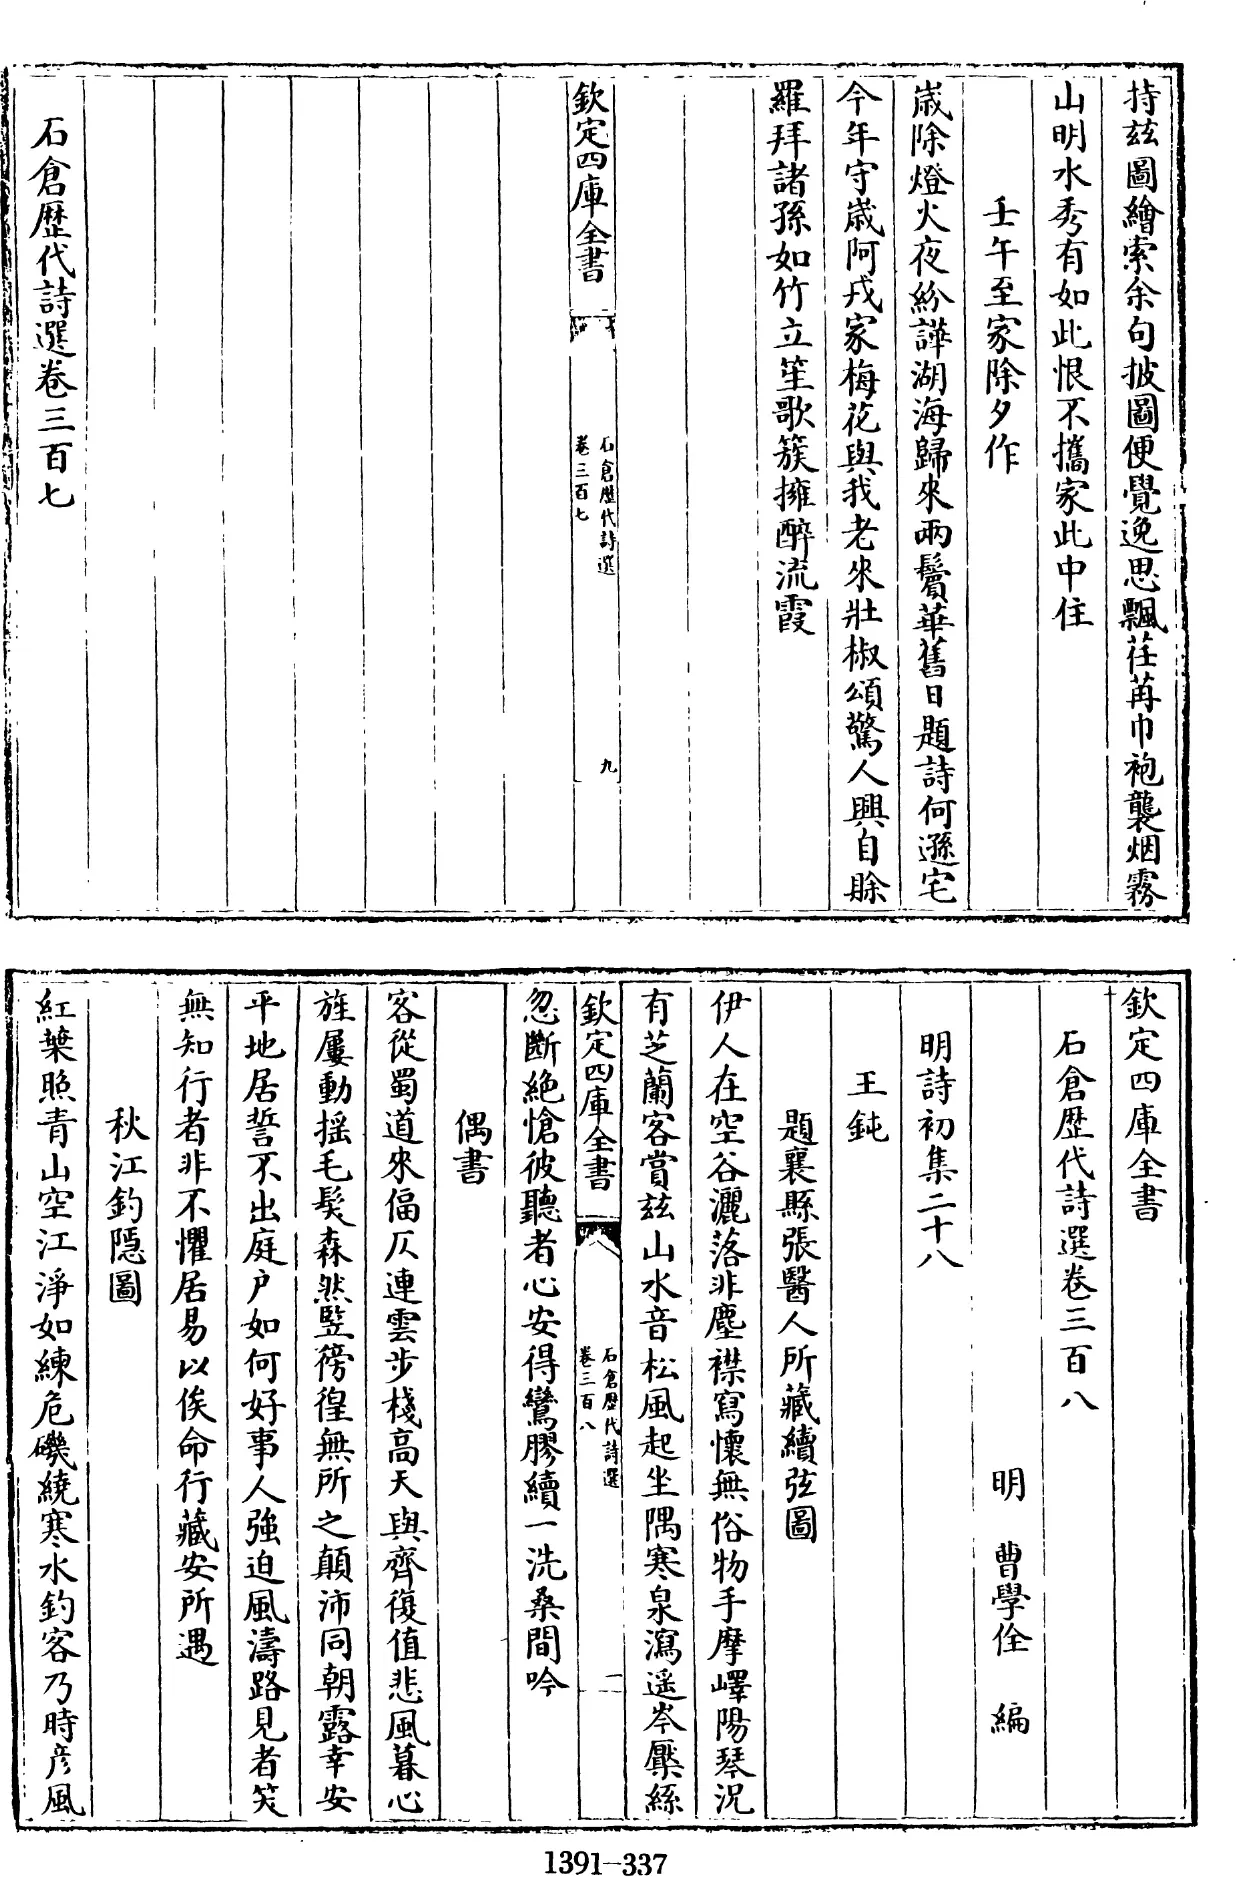 持兹圖繪索余句披圖便覺逸思飄荏苒巾袍襲烟霧
山明水秀有如此恨不攜家此中住
壬午至家除夕作
嵗除燈火夜紛譁湖海歸來兩鬢華舊日題詩何遜宅
今年守嵗阿戎家梅花與我老來壯椒頌驚人興自賖
羅拜諸孫如竹立笙歌簇擁醉流霞
欽定四庫全書
石倉歴代詩選
卷三百七
九
石倉歴代詩選卷三百七
欽定四庫全書
石倉歴代詩選卷三百八
明 曹學佺 編
明詩初集二十八
王鈍
題襄縣張醫人所藏續弦圖
伊人在空谷灑落非塵襟寫懷無俗物手摩嶧陽琴況
有芝蘭客賞兹山水音松風起坐隅寒泉瀉遥岑檿絲
欽定四庫全書
石倉歴代詩選
卷三百八
一
忽斷絶愴彼聽者心安得鸞膠續一洗桑間吟
偶書
客從蜀道來偪仄連雲步棧高天與齊復值悲風暮心
旌屢動揺毛髮森然竪徬徨無所之顛沛同朝露幸安
平地居誓不出庭户如何好事人強迫風濤路見者笑
無知行者非不懼居易以俟命行藏安所遇
秋江釣隱圖
紅葉照青山空江淨如練危磯繞寒水釣客乃時彦風
1391-337